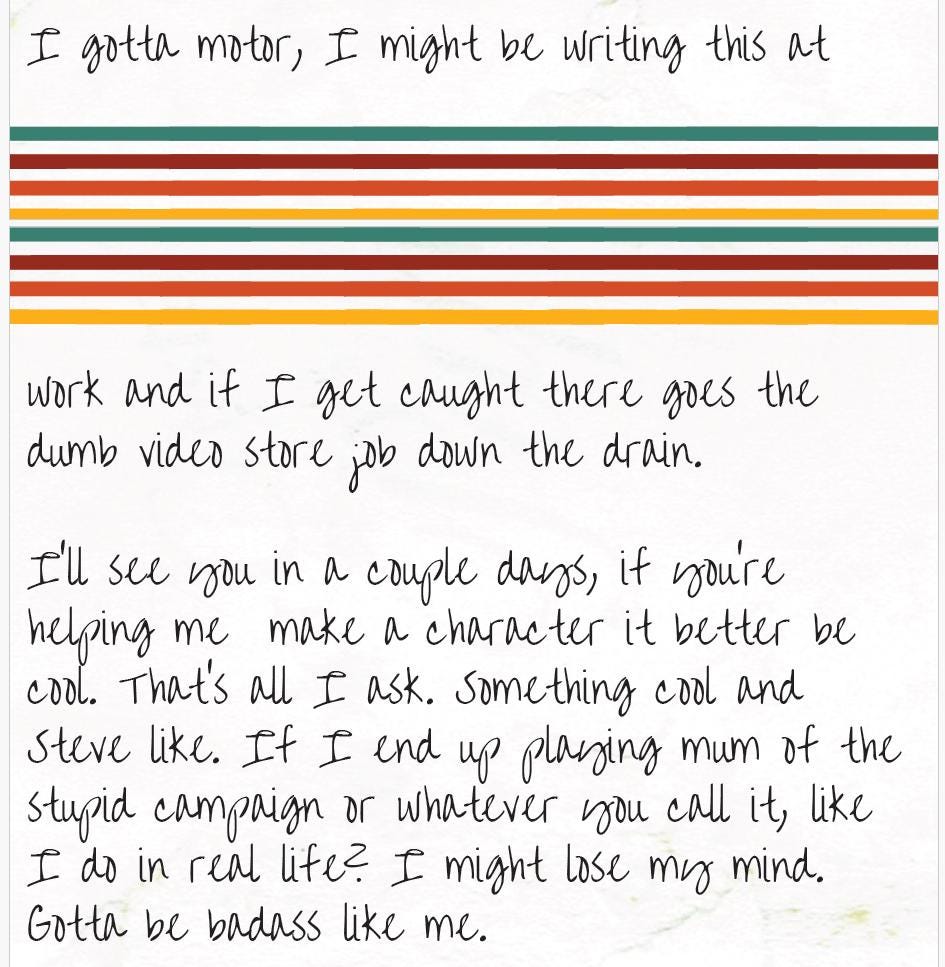 I gotta motor, I might be writing this at
work and if I get caught there goes the
dumb video store job down the drain.
I'll see you in a couple days, if you're
helping me make a character it better be
cool. That's all I ask. Something cool and
Steve like. If I end up playing mum of the
stupid campaign or whatever you call it, like
I do in real life? I might lose my mind.
Gotta be badass like me.